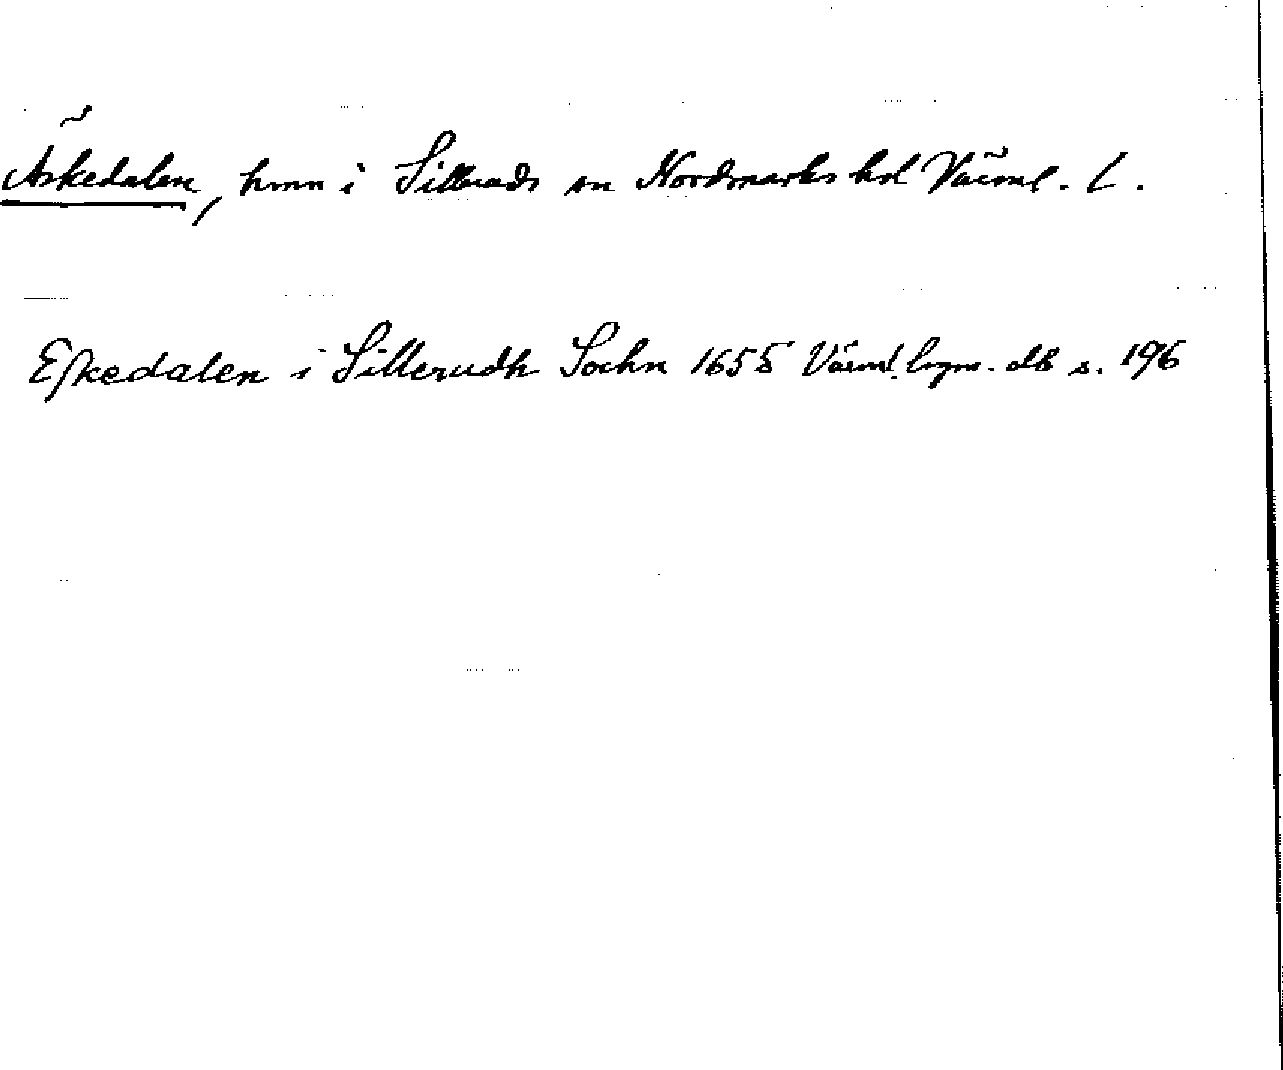 Äskedalen, hmn i Silleruds sn Nordmarks hd Värml. L.
Eskedalen i Sillerudh Sochn 1655 Värml. lagm. db s. 196